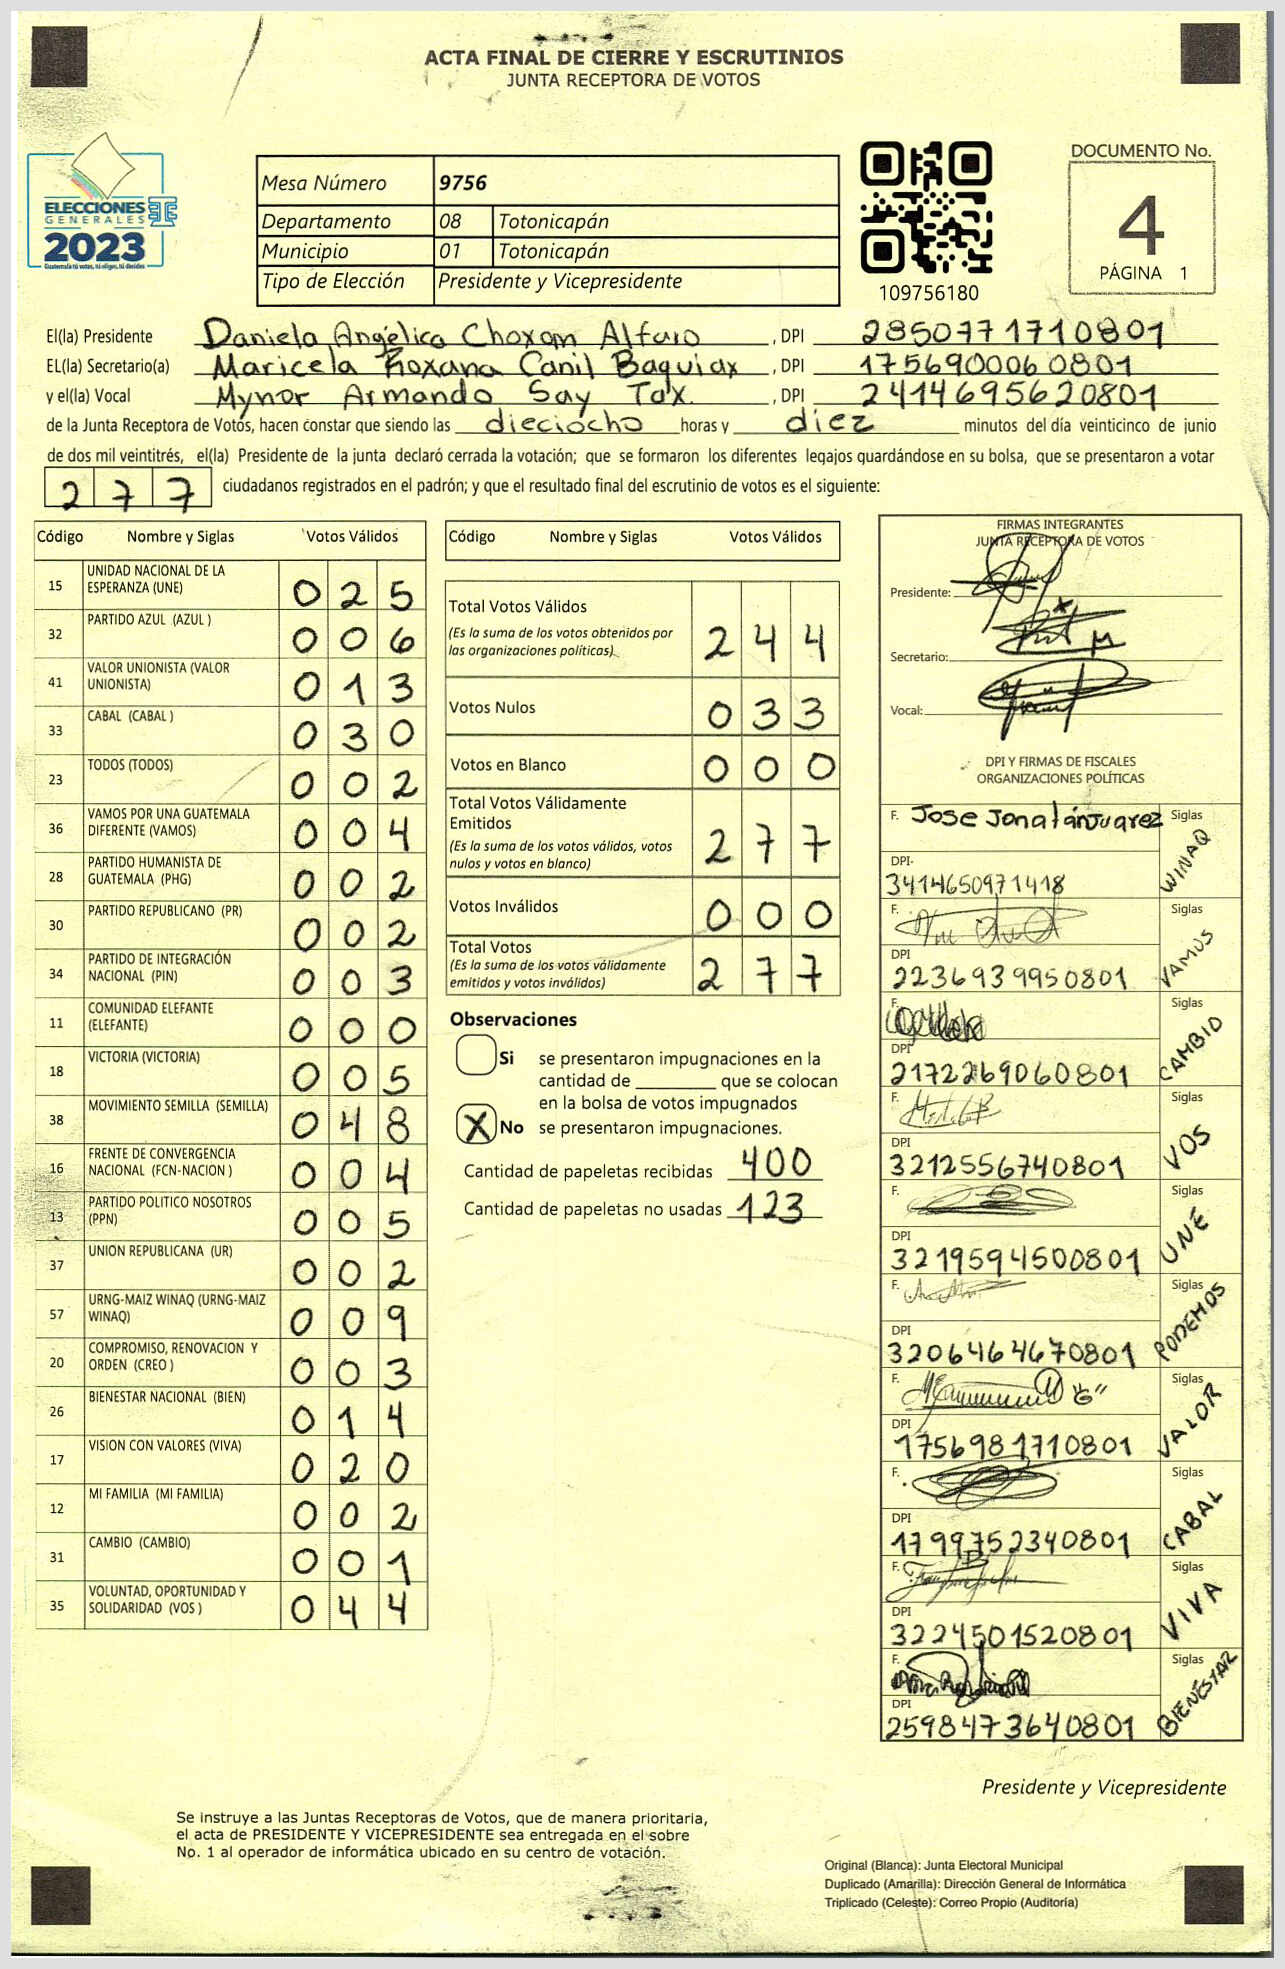 ACTA FINAL DE CIERRE Y ESCRUTINIOS
JUNTA RECEPTORA DE VOTOS
ELECCIONES
GENERALES
2023
Guatemala tú votas, tú eliges, tú decides
Mesa Número 9756
Departamento 08 Totonicapán
Municipio 01 Totonicapán
Tipo de Elección Presidente y Vicepresidente
109756180
DOCUMENTO No.
4
PÁGINA 1
El(la) Presidente Daniela Angélica Choxom Alfaro, DPI 2850771710801
EL(la) Secretario(a) Maricela Roxana Canil Baquiax, DPI 1756900060801
y el(la) Vocal Mynor Armando Say Tax., DPI 2414695620801
de la Junta Receptora de Votos, hacen constar que siendo las dieciocho horas y diez minutos del día veinticinco de junio
de dos mil veintitrés, el(la) Presidente de la junta declaró cerrada la votación; que se formaron los diferentes legajos guardándose en su bolsa, que se presentaron a votar
277 ciudadanos registrados en el padrón; y que el resultado final del escrutinio de votos es el siguiente:
Código Nombre y Siglas Votos Válidos
15 UNIDAD NACIONAL DE LA ESPERANZA (UNE) 025
32 PARTIDO AZUL (AZUL ) 006
41 VALOR UNIONISTA (VALOR UNIONISTA) 013
33 CABAL (CABAL ) 030
23 TODOS (TODOS) 002
36 VAMOS POR UNA GUATEMALA DIFERENTE (VAMOS) 004
28 PARTIDO HUMANISTA DE GUATEMALA (PHG) 002
30 PARTIDO REPUBLICANO (PR) 002
34 PARTIDO DE INTEGRACIÓN NACIONAL (PIN) 003
11 COMUNIDAD ELEFANTE (ELEFANTE) 000
18 VICTORIA (VICTORIA) 005
38 MOVIMIENTO SEMILLA (SEMILLA) 048
16 FRENTE DE CONVERGENCIA NACIONAL (FCN-NACION ) 004
13 PARTIDO POLITICO NOSOTROS (PPN) 005
37 UNION REPUBLICANA (UR) 002
57 URNG-MAIZ WINAQ (URNG-MAIZ WINAQ) 009
20 COMPROMISO, RENOVACION Y ORDEN (CREO ) 003
26 BIENESTAR NACIONAL (BIEN) 014
17 VISION CON VALORES (VIVA) 020
12 MI FAMILIA (MI FAMILIA) 002
31 CAMBIO (CAMBIO) 001
35 VOLUNTAD, OPORTUNIDAD Y SOLIDARIDAD (VOS ) 044
Código Nombre y Siglas Votos Válidos
Total Votos Válidos 244
(Es la suma de los votos obtenidos por
las organizaciones políticas).
Votos Nulos 033
Votos en Blanco 000
Total Votos Válidamente
Emitidos 277
(Es la suma de los votos válidos, votos
nulos y votos en blanco)
Votos Inválidos 000
Total Votos 277
(Es la suma de los votos válidamente
emitidos y votos inválidos)
Observaciones
Si se presentaron impugnaciones en la
cantidad de ________ que se colocan
en la bolsa de votos impugnados
X No se presentaron impugnaciones.
Cantidad de papeletas recibidas 400
Cantidad de papeletas no usadas 123
FIRMAS INTEGRANTES
JUNTA RECEPTORA DE VOTOS
Presidente:
Secretario:
Vocal:
DPI Y FIRMAS DE FISCALES
ORGANIZACIONES POLÍTICAS
F. Jose Jonatán Juarez Siglas WINAQ
DPI 3414650971418
F. Siglas VAMOS
DPI 2236939950801
F. Siglas CAMBIO
DPI 2172269060801
F. Siglas VOS
DPI 3212556740801
F. Siglas UNE
DPI 3219594500801
F. Siglas PODEMOS
DPI 3206464670801
F. Siglas VALOR
DPI 1756981710801
F. Siglas CABAL
DPI 1799752340801
F. Siglas VIVA
DPI 3224501520801
F. Siglas BIENESTAR
DPI 2598473640801
Presidente y Vicepresidente
Se instruye a las Juntas Receptoras de Votos, que de manera prioritaria,
el acta de PRESIDENTE Y VICEPRESIDENTE sea entregada en el sobre
No. 1 al operador de informática ubicado en su centro de votación.
Original (Blanca): Junta Electoral Municipal
Duplicado (Amarilla): Dirección General de Informática
Triplicado (Celeste): Correo Propio (Auditoría)